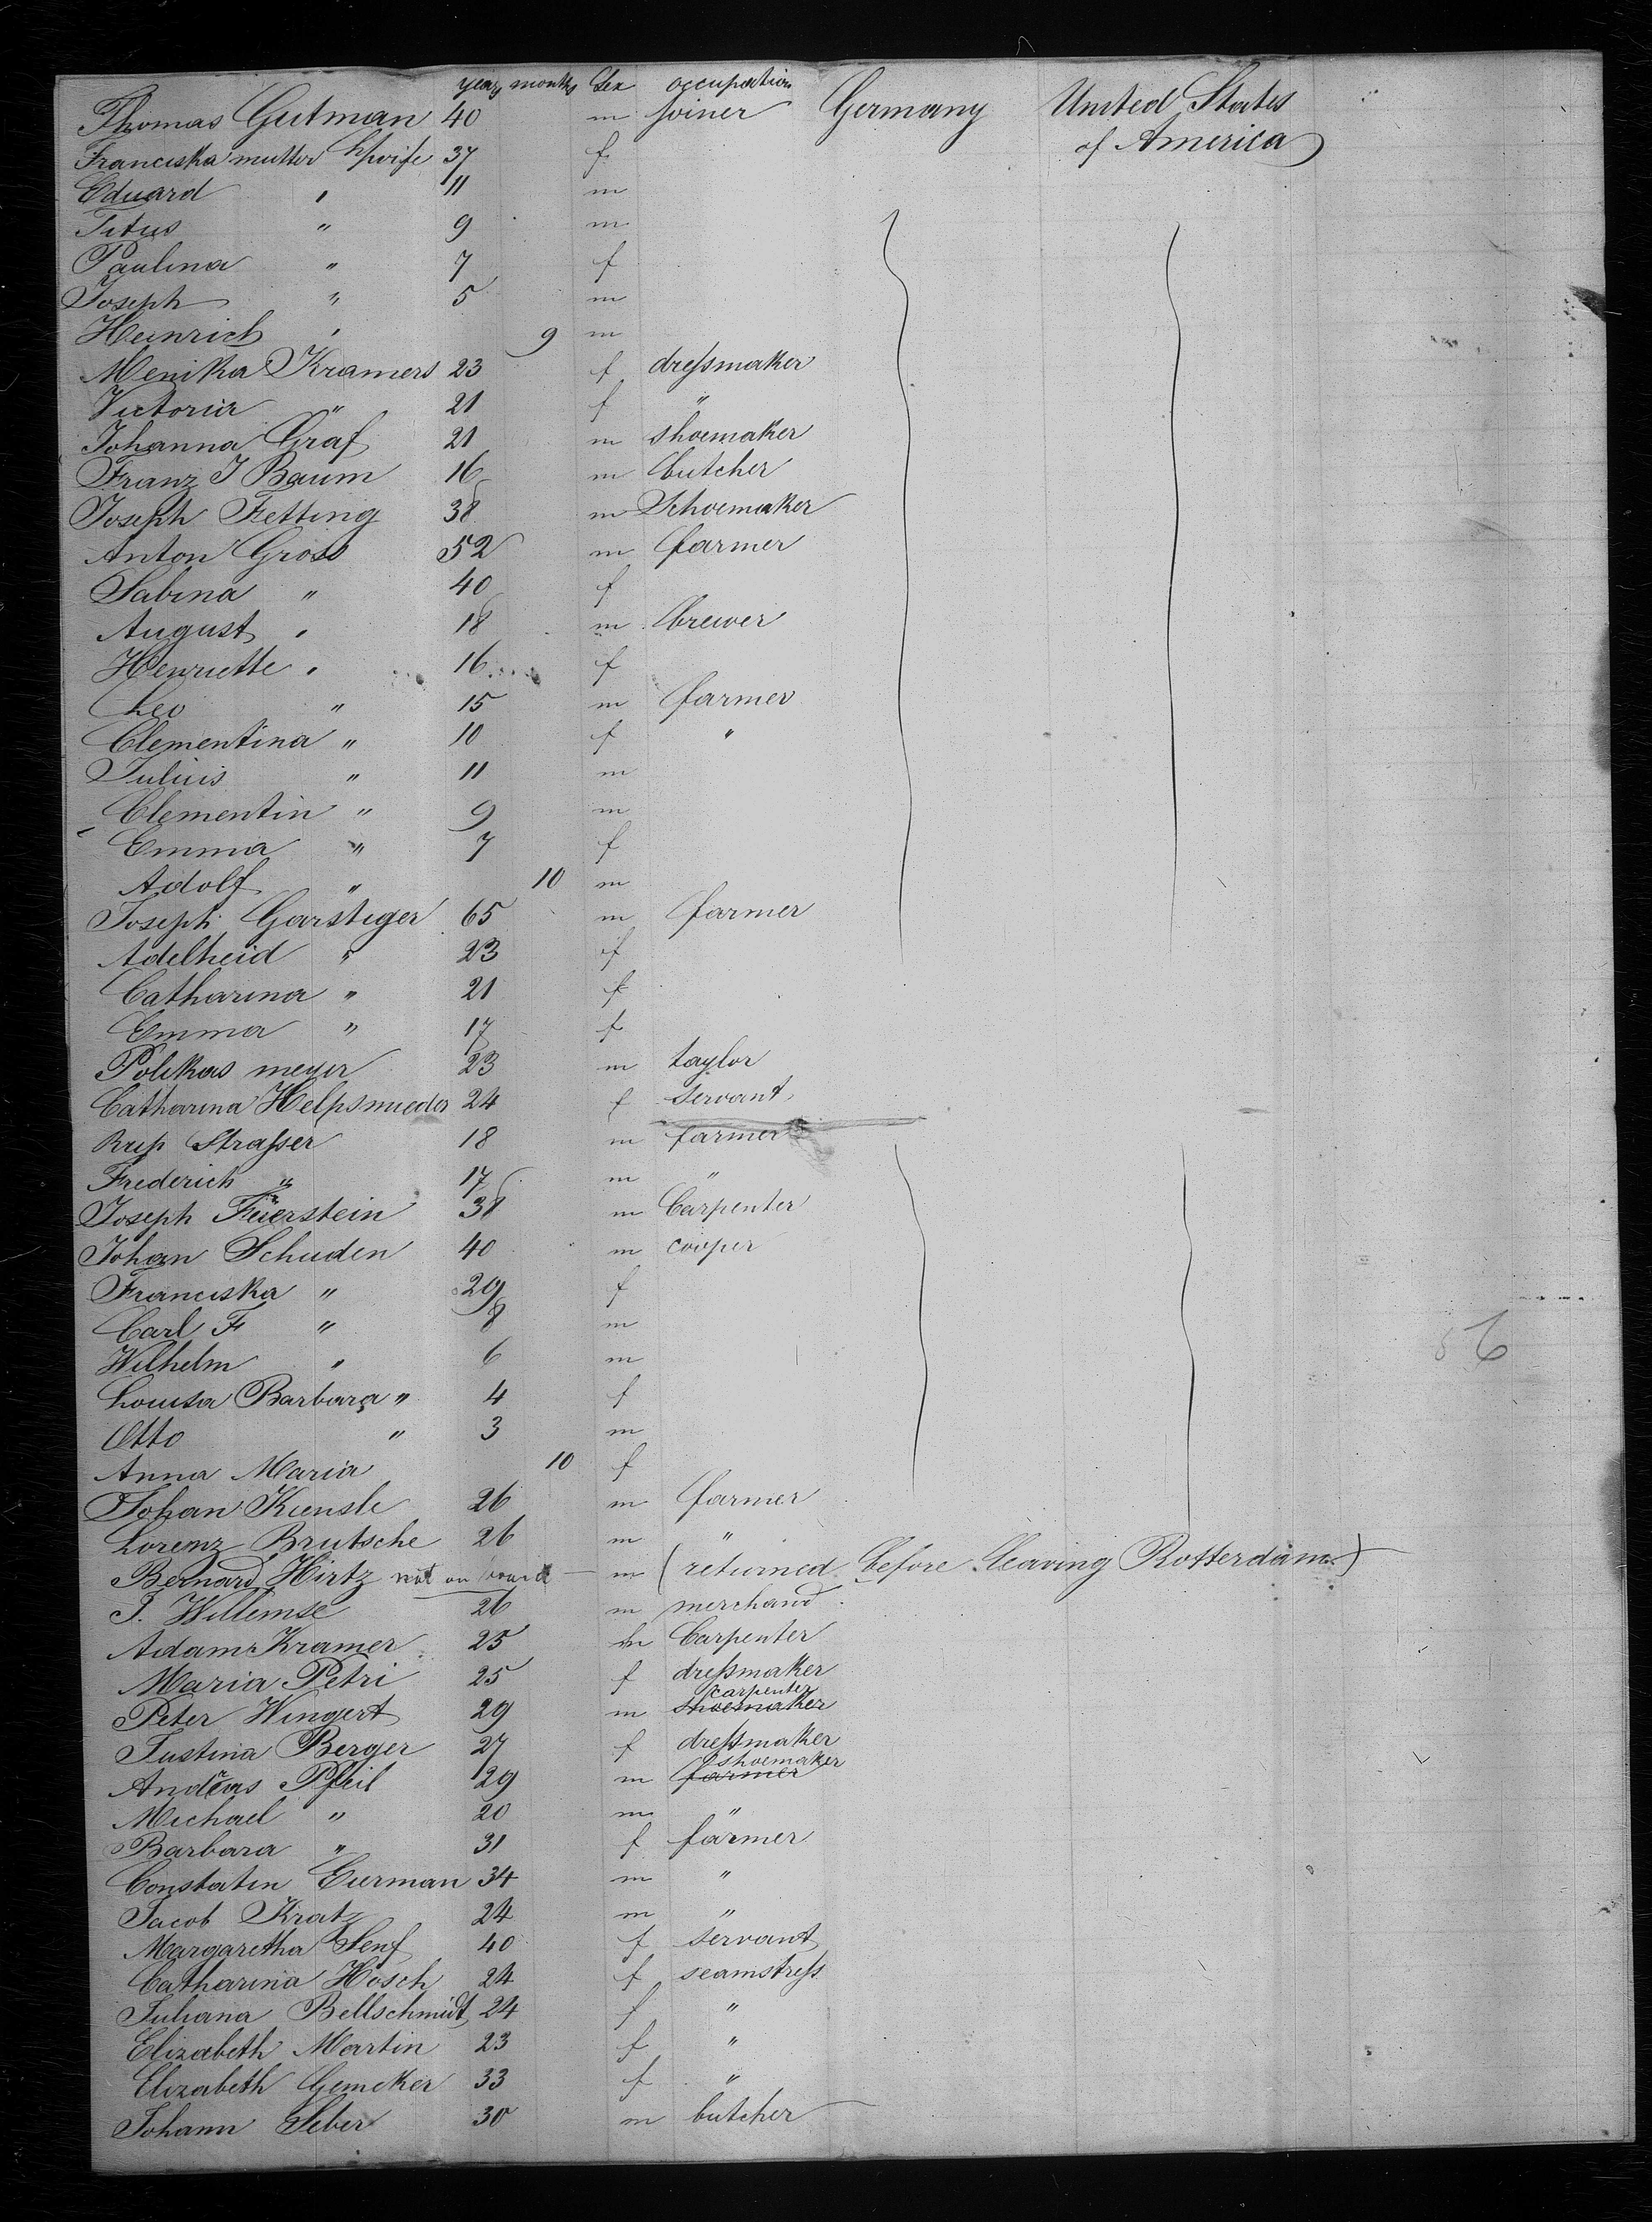 years months Sex occupation
Thomas Gutman 40 m joiner Germany United States
of America
Franciska mutter & wife 37 f
Eduard " 11 m
Titus " 9 m
Paulina " 7 f
Joseph " 5 m
Heinrich " 9 m
Menika Kramers 23 f dressmaker
Victoria " 21 f "
Johanna Graf 21 m shoemaker
Franz J Baum 16 m butcher
Joseph Fetting 38 m Schoemaker
Anton Gross 52 m farmer
Sabina " 40 f
August " 18 m brewer
Henriette " 16 f
Leo " 15 m farmer
Clementina " 10 f "
Julius " 11 m
Clementin " 9 m
Emma " 7 f
Adolf " 10 m
Joseph Garstiger 65 m farmer
Adelheid " 23 f
Catharina " 21 f
Emma " 17 f
Polikas meyer 23 m taylor
Catharina 24 f Servant
Strasser 18 m farmer
Frederich " 17 m "
Joseph Füerstein 38 m Carpenter
Johan Schuden 40 m cooper
Franciska " 29 f
Carl F " 8 m
Wilhelm " 6 m
Louisa Barbara " 4 f
Otto " 3 m
Anna Maria 10 f
Johan Kiensle 26 m farmer
Lorenz Brutsche 26 m "
Bernard Hirtz not on board — m (returned before leaving Rotterdam)
J. Willemse 26 m merchand
Adam Kramer 25 m Carpenter
Maria Petri 25 f dressmaker
Peter Wingert 29 m shoemaker carpenter
Justina Berger 27 f dressmaker
Andreas Pfeil 29 m farmer shoemaker
Michael " 20 m "
Barbara " 31 f farmer
Constatin Eurman 34 m "
Jacob Kratz 24 m "
Margaretha Senf 40 f servant
Catharina Hosch 24 f seamstress
Juliana Bellschmidt 24 f "
Elizabeth Martin 23 f "
Elizabeth Gemeker 33 f "
Johann Seber 30 m butcher